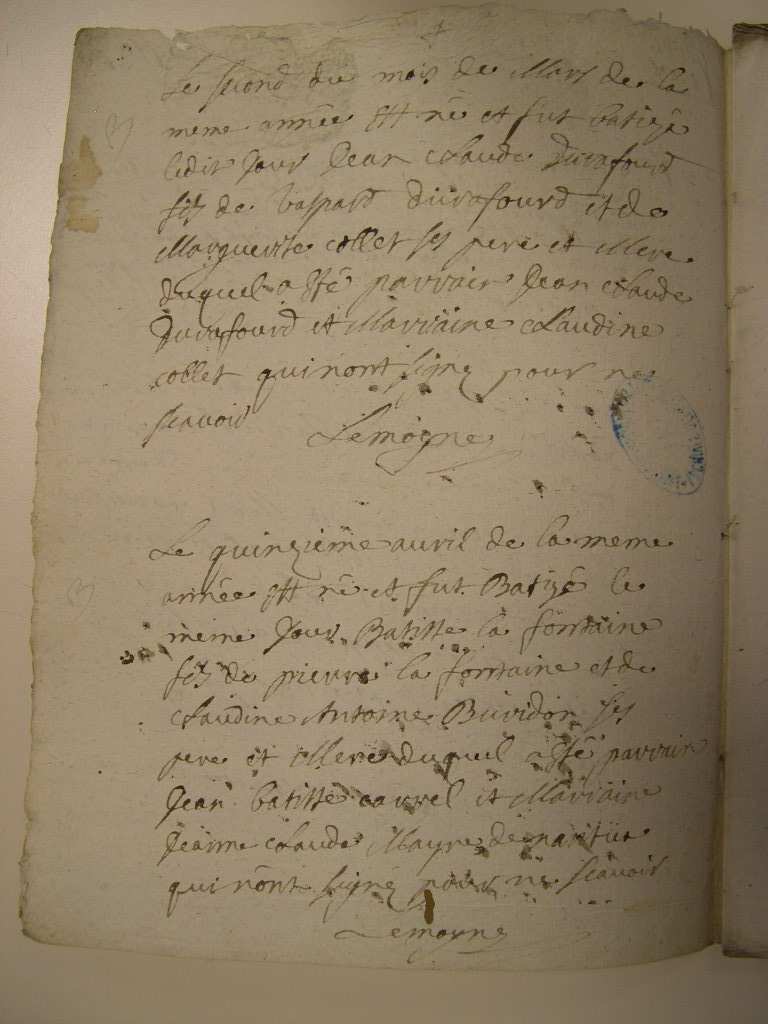 Le second du mois de Mars de la
meme année est né et fut batizé
ledit Jour Jean Claude Durafourd
filz de Gaspard Durafourd et de
Marguerite Collet ses pere et Mere
duquel a esté parrain Jean Claude
Durafourd et Marraine Claudine
Collet qui nont signé pour ne
scavoir Lemoyne
Le quinzieme auril de la meme
année est né et fut Batizé le
meme Jour Batiste la fontaine
filz de pierre la fontaine et de
Claudine Antoine Buridon ses
pere et Mere duquel a esté parrain
Jean batiste carrel et Marraine
Jeanne Claude Mayre de
qui nont signé pour ne scavoir
Lemoyne